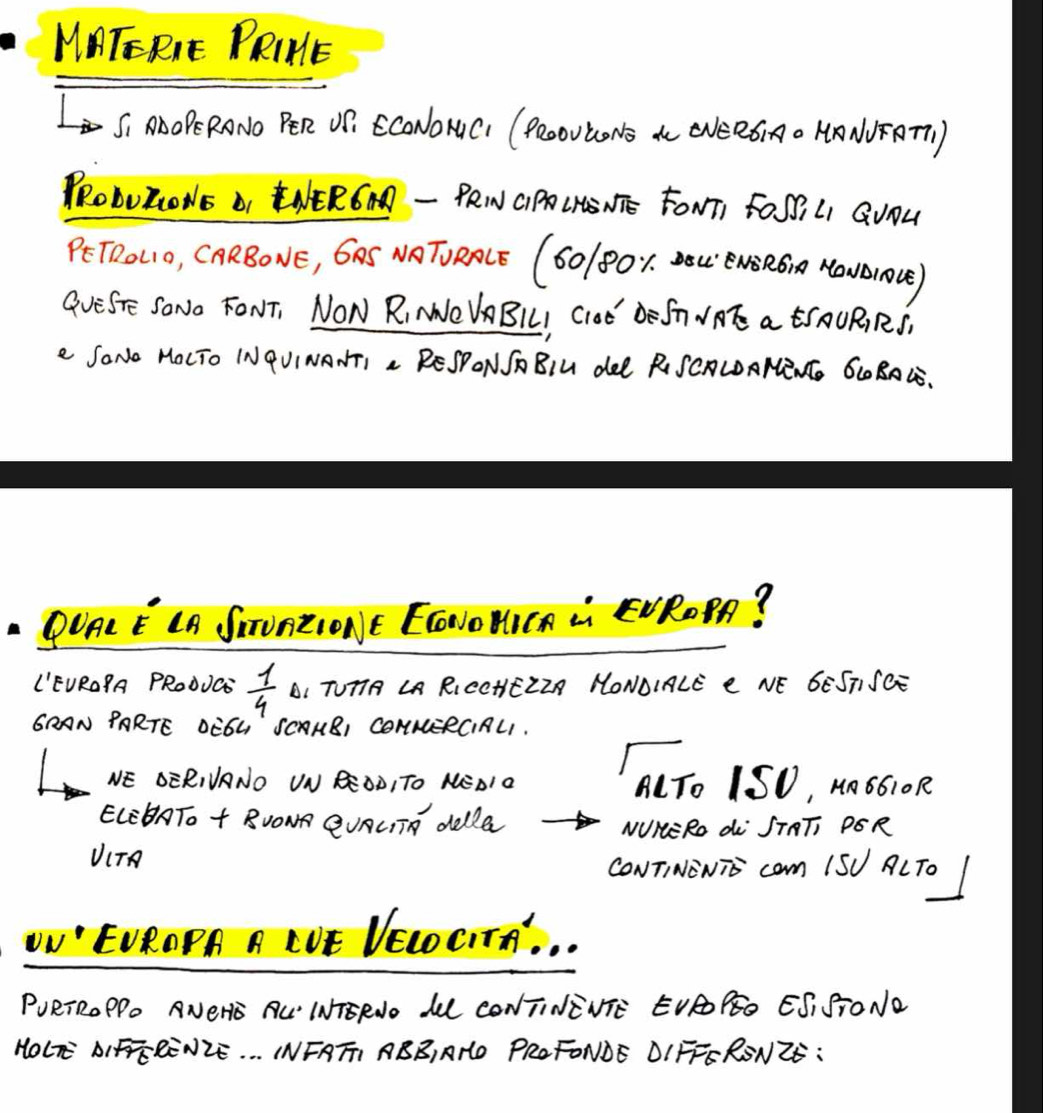 MATERIE PRIME
SI ADOPERANO PER USI ECONOMICI (PRODUZIONE di ENERGIA o MANUFATTI)
PRODUZIONE DI ENERGIA – PRINCIPALMENTE FONTI FOSSILI QUALI
PETROLIO, CARBONE, GAS NATURALE (60/80% DELL'ENERGIA MONDIALE)
QUESTE SONO FONTI NON RINNOVABILI, CIOÉ DESTINATE a ESAURIRSI
e SONO MOLTO INQUINANTI e RESPONSABILI del RISCALDAMENTO GLOBALE.
QUAL É LA SITUAZIONE ECONOMICA in EUROPA?
L'EUROPA PRODUCE 1/4 DI TUTTA LA RICCHEZZA MONDIALE e NE GESTISCE
GRAN PARTE DEGLI SCAMBI COMMERCIALI.
NE DERIVANO UN REDDITO MEDIO
ELEVATO + BUONA QUALITÁ della
VITA
ALTO ISU, MAGGIOR
NUMERO di STATI PER
CONTINENTE com ISU ALTO
UN'EUROPA A DUE VELOCITÁ...
PURTROPPO ANCHE ALL'INTERNO del CONTINENTE EUROPEO ESISTONO
MOLTE DIFFERENZE... INFATTI ABBIAMO PROFONDE DIFFERENZE: